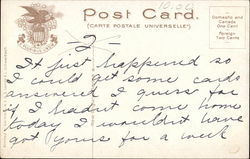 10.00
Post Card.
(CARTE POSTALE UNIVERSELLE)
Domestic and
Canada
One Cent
Foreign
Two Cents
2-
It just happened so
I could get some cards
answered I guess for
if I hadnt come home
today I wouldn't have
got yours for a week